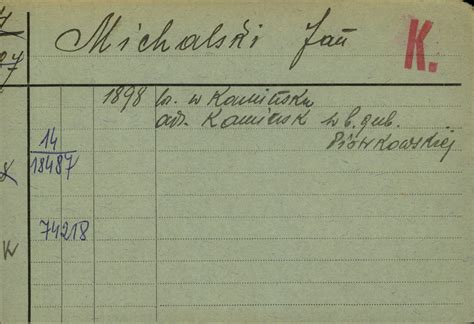 Michalski Jan
K.
1898 ur. w Kamińsku
adr. Kamińsk w b. gub.
Piotrkowskiej
14
18487
74218
K